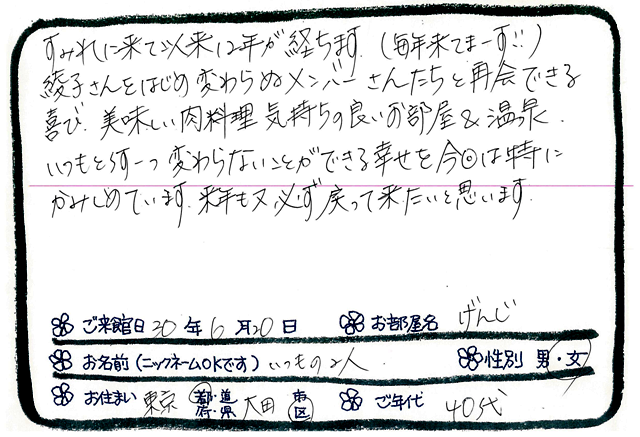 すみれに来て以来12年が経ちます。(毎年来てまーす!!)
綾子さんをはじめ変わらぬメンバーさんたちと再会できる
喜び、美味しい肉料理 気持ちの良いお部屋&温泉。
いつもと何一つ変わらないことができる幸せを今回は特に
かみしめています。来年も又必ず戻って来たいと思います。
ご来館日 30年6月20日 お部屋名 げんじ
お名前(ニックネームOKです) いつもの2人 性別 男・女
お住まい 東京 都・道・府・県 大田 市・区 ご年代 40代